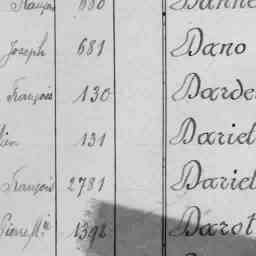 François 680 Danne
Joseph 681 Dano
François 130 Darde
131 Dariel
François 2781 Dariel
Pierre Me 1392 Darot